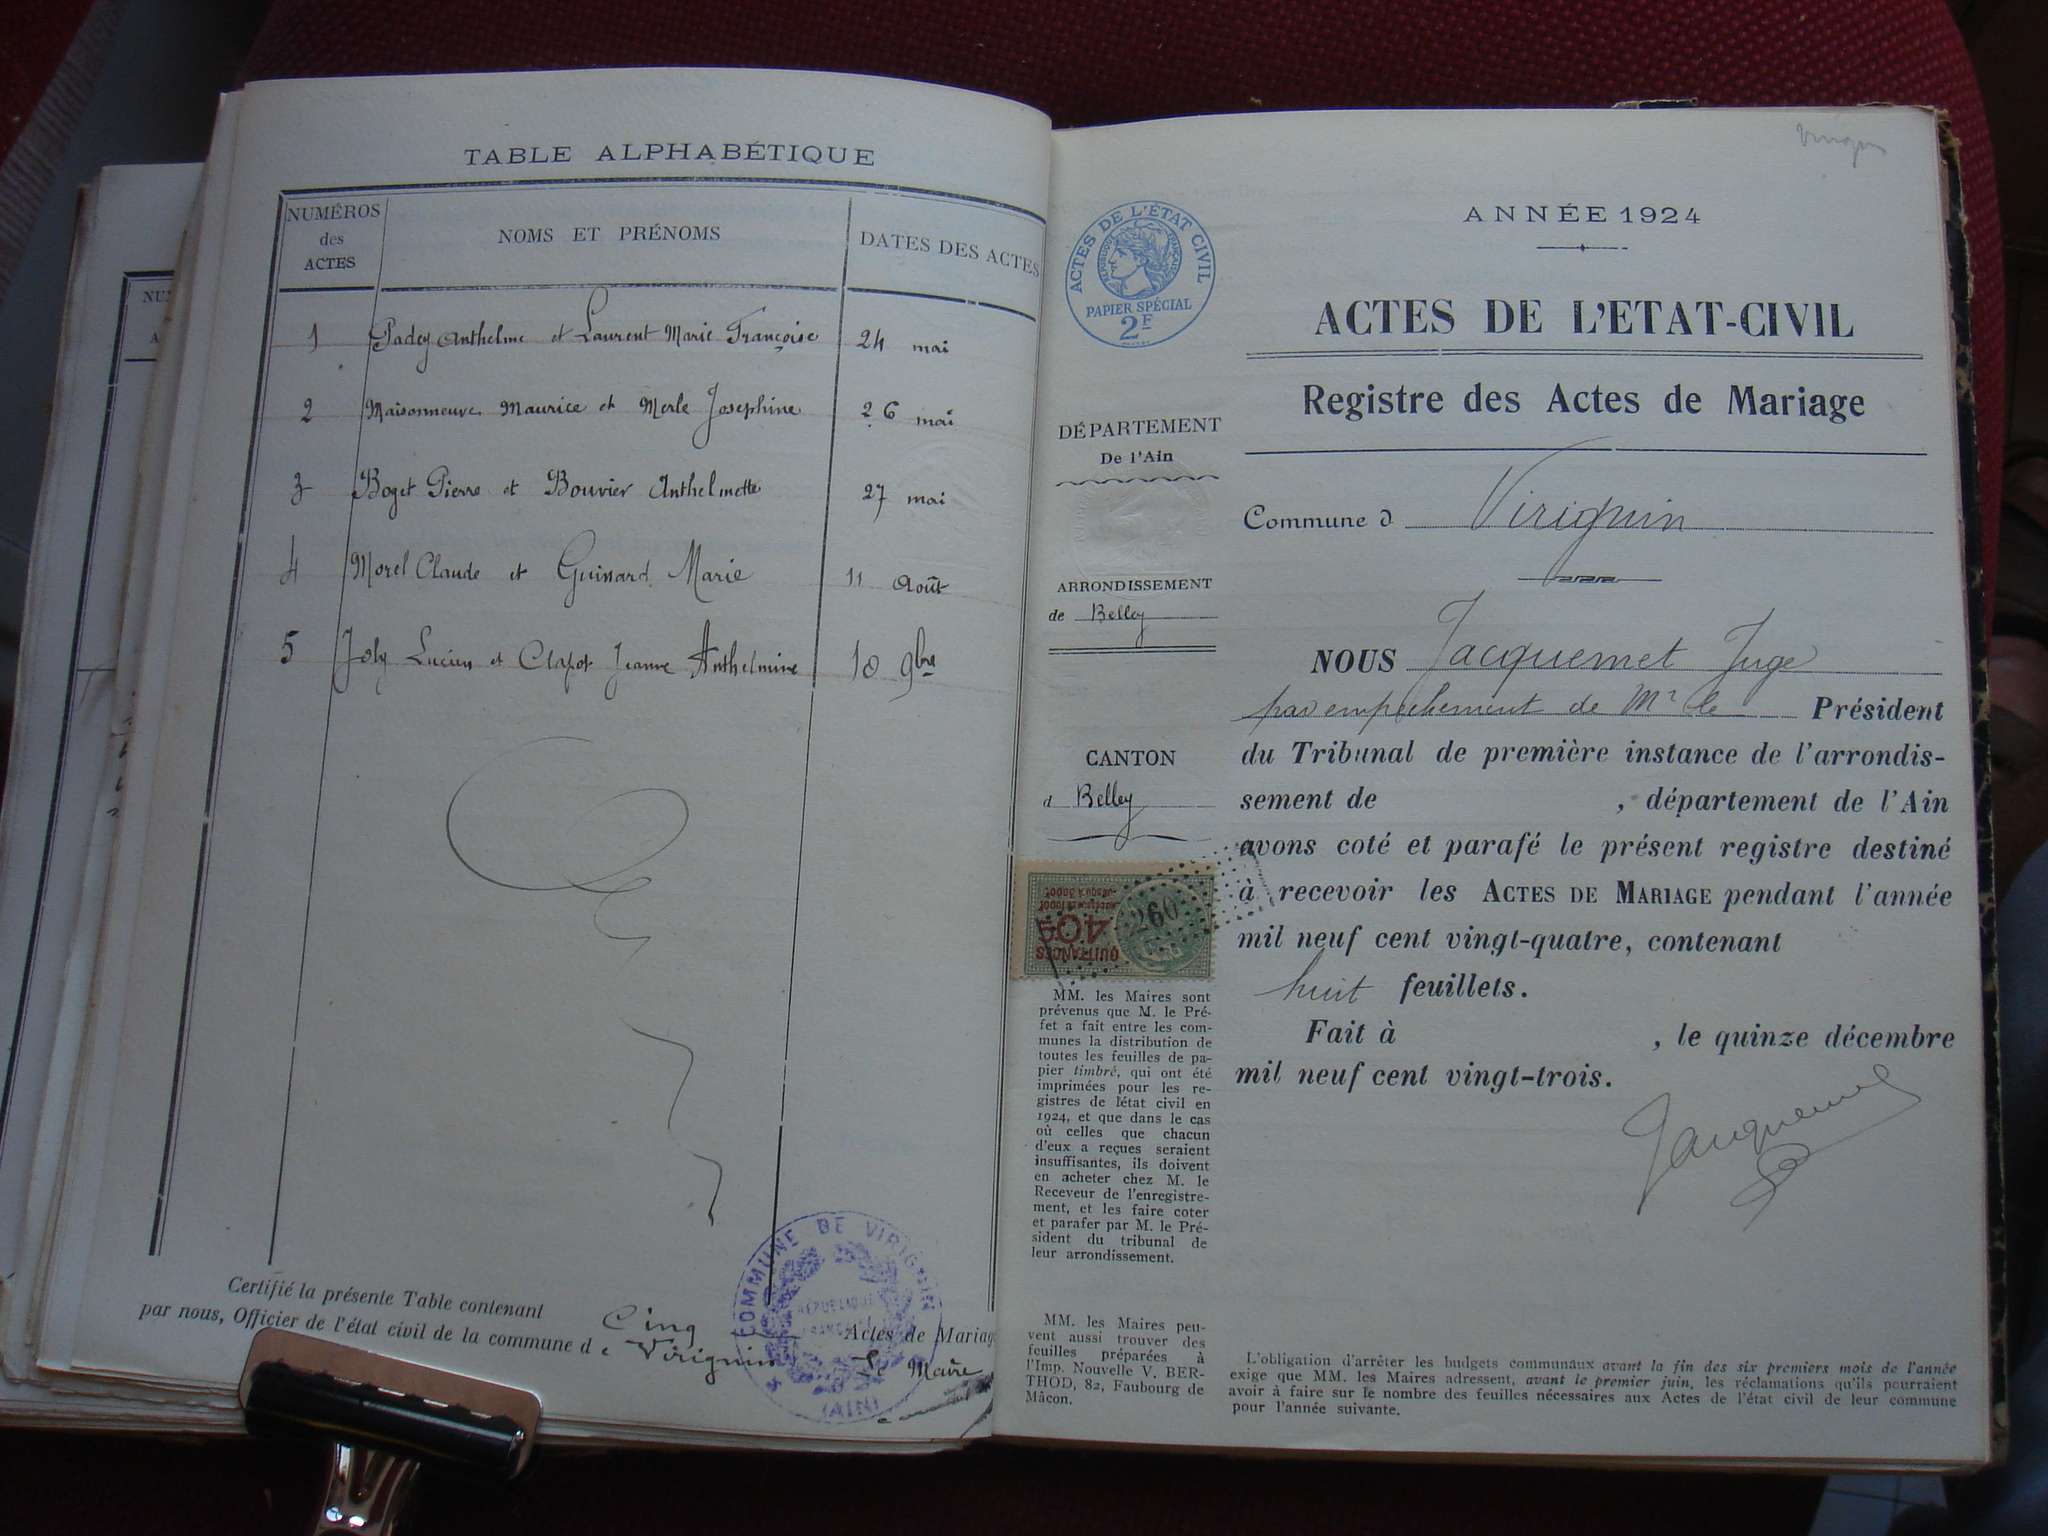 TABLE ALPHABÉTIQUE
NUMÉROS des ACTES
NOMS ET PRÉNOMS
DATES DES ACTES
1 Padey Anthelme et Laurent Marie Françoise 24 mai
2 Maisonneuve Maurice et Merle Josephine 26 mai
3 Boget Pierre et Bouvier Anthelmette 27 mai
4 Morel Claude et Guinard Marie 11 Août
5 Joly Lucien et Clapot Jeanne Anthelmine 18 9bre
Certifié la présente Table contenant Cinq Actes de Mariage
par nous, Officier de l'état civil de la commune de Virignin
Le Maire
COMMUNE DE VIRIGNIN
RÉPUBLIQUE
FRANÇAISE
(AIN)
ACTES DE L'ÉTAT CIVIL
RÉPUBLIQUE FRANÇAISE
PAPIER SPÉCIAL
2F
DÉPARTEMENT
De l'Ain
ARRONDISSEMENT
de Belley
CANTON
d Belley
260
QUITTANCES
40c
MM. les Maires sont
prévenus que M. le Pré-
fet a fait entre les com-
munes la distribution de
toutes les feuilles de pa-
pier timbré, qui ont été
imprimées pour les re-
gistres de l'état civil en
1924, et que dans le cas
où celles que chacun
d'eux a reçues seraient
insuffisantes, ils doivent
en acheter chez M. le
Receveur de l'enregistre-
ment, et les faire coter
et parafer par M. le Pré-
sident du tribunal de
leur arrondissement.
MM. les Maires peu-
vent aussi trouver des
feuilles préparées à
l'Imp. Nouvelle V. BER-
THOD, 82, Faubourg de
Mâcon.
ANNÉE 1924
ACTES DE L'ETAT-CIVIL
Registre des Actes de Mariage
Commune d Virignin
NOUS Jacquemet Juge
par empêchement de Mr le Président
du Tribunal de première instance de l'arrondis-
sement de , département de l'Ain
avons coté et parafé le présent registre destiné
à recevoir les ACTES DE MARIAGE pendant l'année
mil neuf cent vingt-quatre, contenant
huit feuillets.
Fait à , le quinze décembre
mil neuf cent vingt-trois.
Jacquemet
L'obligation d'arrêter les budgets communaux avant la fin des six premiers mois de l'année
exige que MM. les Maires adressent, avant le premier juin, les réclamations qu'ils pourraient
avoir à faire sur le nombre des feuilles nécessaires aux Actes de l'état civil de leur commune
pour l'année suivante.